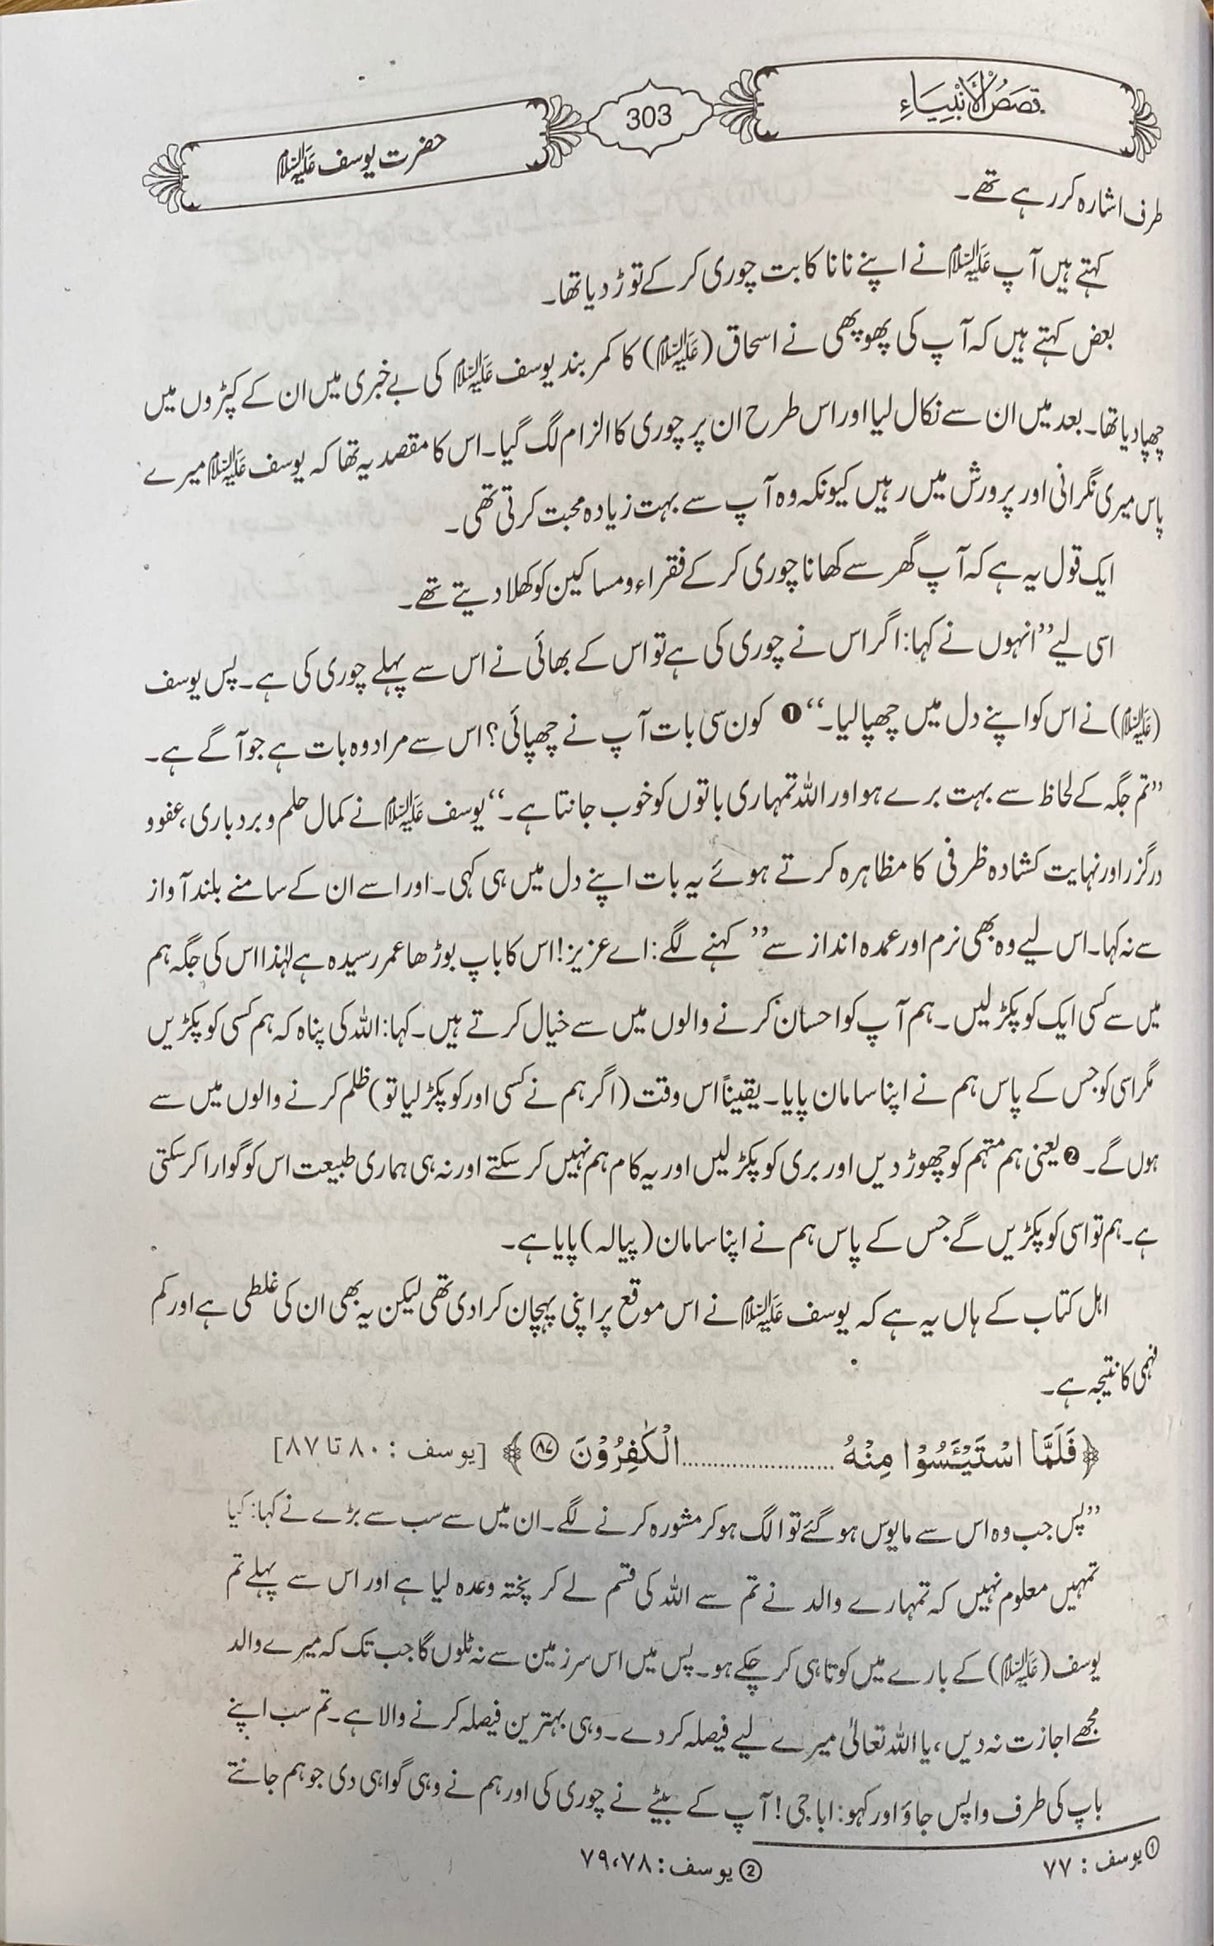 قصص الأنبیاء
303
حضرت یوسف علیہ السلام
طرف اشارہ کر رہے تھے۔
کہتے ہیں آپ علیہ السلام نے اپنے نانا کا بت چوری کر کے توڑ دیا تھا۔
بعض کہتے ہیں کہ آپ کی پھوپھی نے اسحاق (علیہ السلام) کا کمر بند یوسف علیہ السلام کی بے خبری میں ان کے کپڑوں میں
چھپا دیا تھا۔ بعد میں ان سے نکال لیا اور اس طرح ان پر چوری کا الزام لگ گیا۔ اس کا مقصد یہ تھا کہ یوسف علیہ السلام میرے
پاس میری نگرانی اور پرورش میں رہیں کیونکہ وہ آپ سے بہت زیادہ محبت کرتی تھی۔
ایک قول یہ ہے کہ آپ گھر سے کھانا چوری کر کے فقراء و مساکین کو کھلا دیتے تھے۔
اسی لیے ”انہوں نے کہا: اگر اس نے چوری کی ہے تو اس کے بھائی نے اس سے پہلے چوری کی ہے۔ پس یوسف
(علیہ السلام) نے اس کو اپنے دل میں چھپا لیا۔“ ❶ کون سی بات آپ نے چھپائی؟ اس سے مراد وہ بات ہے جو آگے ہے۔
”تم جگہ کے لحاظ سے بہت برے ہو اور اللہ تمہاری باتوں کو خوب جانتا ہے۔“ یوسف علیہ السلام نے کمال حلم و بردباری، عفو و
درگزر اور نہایت کشادہ ظرفی کا مظاہرہ کرتے ہوئے یہ بات اپنے دل میں ہی کہی۔ اور اسے ان کے سامنے بلند آواز
سے نہ کہا۔ اس لیے وہ بھی نرم اور عمدہ انداز سے ”کہنے لگے: اے عزیز! اس کا باپ بوڑھا عمر رسیدہ ہے لہٰذا اس کی جگہ ہم
میں سے کسی ایک کو پکڑ لیں۔ ہم آپ کو احسان کرنے والوں میں سے خیال کرتے ہیں۔ کہا: اللہ کی پناہ کہ ہم کسی کو پکڑیں
مگر اسی کو جس کے پاس ہم نے اپنا سامان پایا۔ یقیناً اس وقت (اگر ہم نے کسی اور کو پکڑ لیا تو) ظلم کرنے والوں میں سے
ہوں گے۔ ❷ یعنی ہم متہم کو چھوڑ دیں اور بری کو پکڑ لیں اور یہ کام ہم نہیں کر سکتے اور نہ ہی ہماری طبیعت اس کو گوارا کر سکتی
ہے۔ ہم تو اسی کو پکڑیں گے جس کے پاس ہم نے اپنا سامان (پیالہ) پایا ہے۔
اہل کتاب کے ہاں یہ ہے کہ یوسف علیہ السلام نے اس موقع پر اپنی پہچان کرا دی تھی لیکن یہ بھی ان کی غلطی ہے اور کم
فہمی کا نتیجہ ہے۔
﴿فَلَمَّا اسْتَيْـَٔسُوْا مِنْهُ ........................ الْكٰفِرُوْنَ ۝۸۷﴾ [یوسف : ۸۰ تا ۸۷]
”پس جب وہ اس سے مایوس ہو گئے تو الگ ہو کر مشورہ کرنے لگے۔ ان میں سے سب سے بڑے نے کہا: کیا
تمہیں معلوم نہیں کہ تمہارے والد نے تم سے اللہ کی قسم لے کر پختہ وعدہ لیا ہے اور اس سے پہلے تم
یوسف (علیہ السلام) کے بارے میں کوتاہی کر چکے ہو۔ پس میں اس سر زمین سے نہ ٹلوں گا جب تک کہ میرے والد
مجھے اجازت نہ دیں، یا اللہ تعالیٰ میرے لیے فیصلہ کر دے۔ وہی بہترین فیصلہ کرنے والا ہے۔ تم سب اپنے
باپ کی طرف واپس جاؤ اور کہو: ابا جی! آپ کے بیٹے نے چوری کی اور ہم نے وہی گواہی دی جو ہم جانتے
① یوسف : ۷۷
② یوسف: ۷۸،۷۹